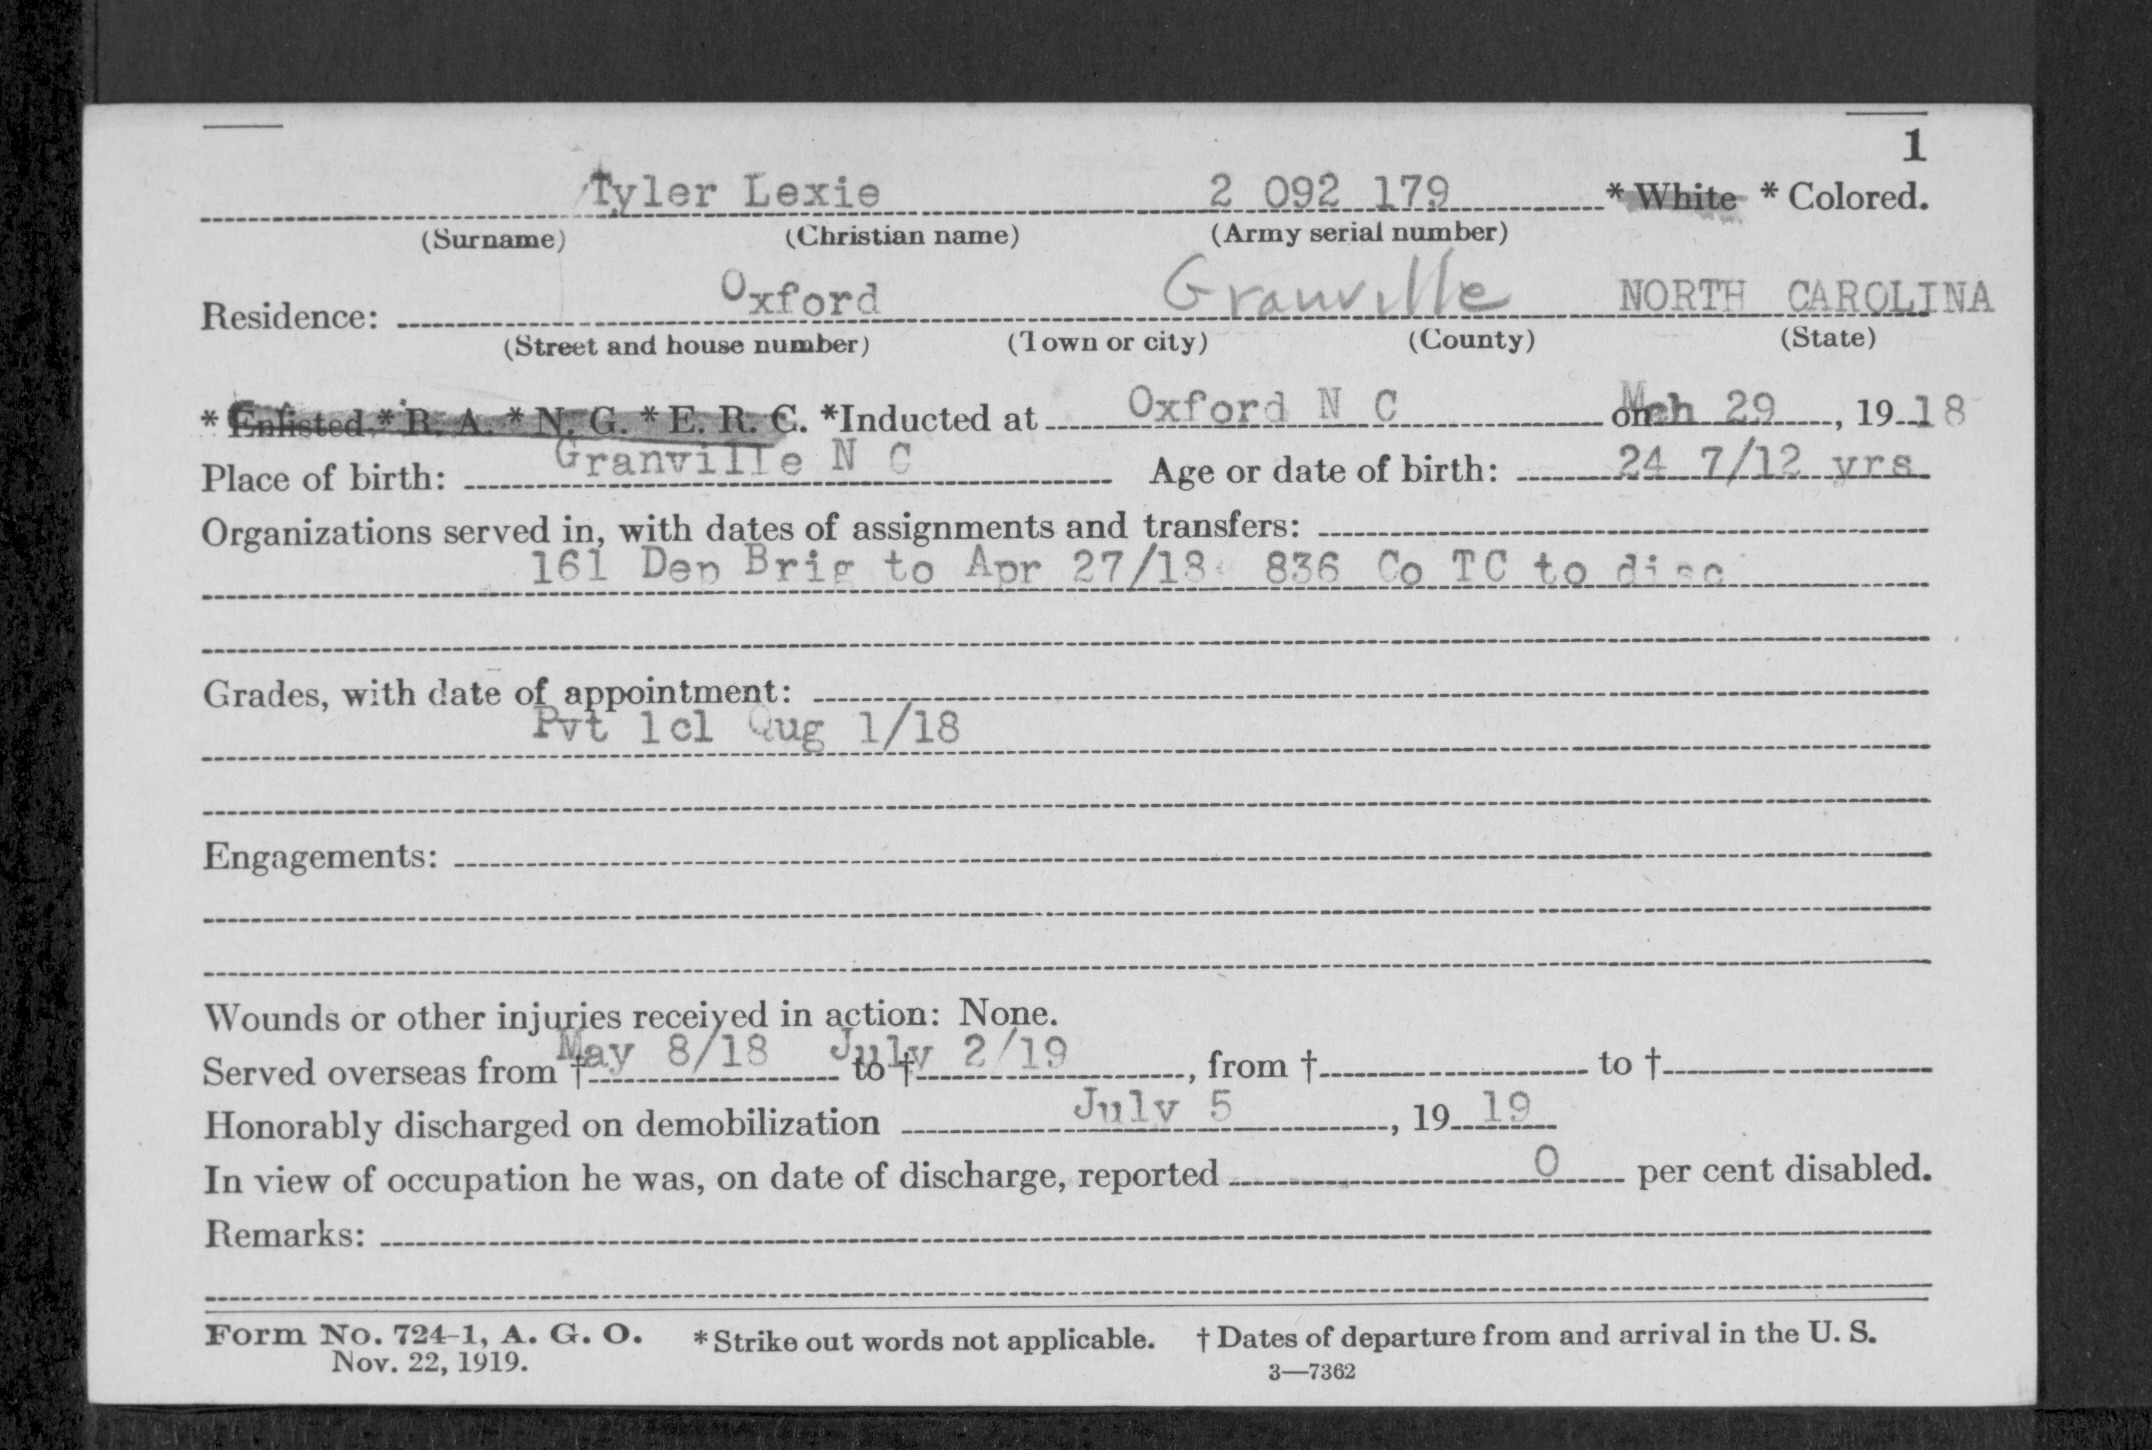 1
Tyler Lexie 2 092 179 * White * Colored.
(Surname) (Christian name) (Army serial number)
Residence: Oxford Granville NORTH CAROLINA
(Street and house number) (Town or city) (County) (State)
* Enlisted * R. A. * N. G. * E. R. C. *Inducted at Oxford N C on Mch 29, 1918
Place of birth: Granville N C Age or date of birth: 24 7/12 yrs
Organizations served in, with dates of assignments and transfers:
161 Dep Brig to Apr 27/18 836 Co TC to disc
Grades, with date of appointment:
Pvt 1cl Qug 1/18
Engagements:
Wounds or other injuries received in action: None.
Served overseas from † May 8/18 to † July 2/19, from † to †
Honorably discharged on demobilization July 5, 19 19
In view of occupation he was, on date of discharge, reported 0 per cent disabled.
Remarks:
Form No. 724-1, A. G. O. * Strike out words not applicable. † Dates of departure from and arrival in the U. S.
Nov. 22, 1919. 3—7362